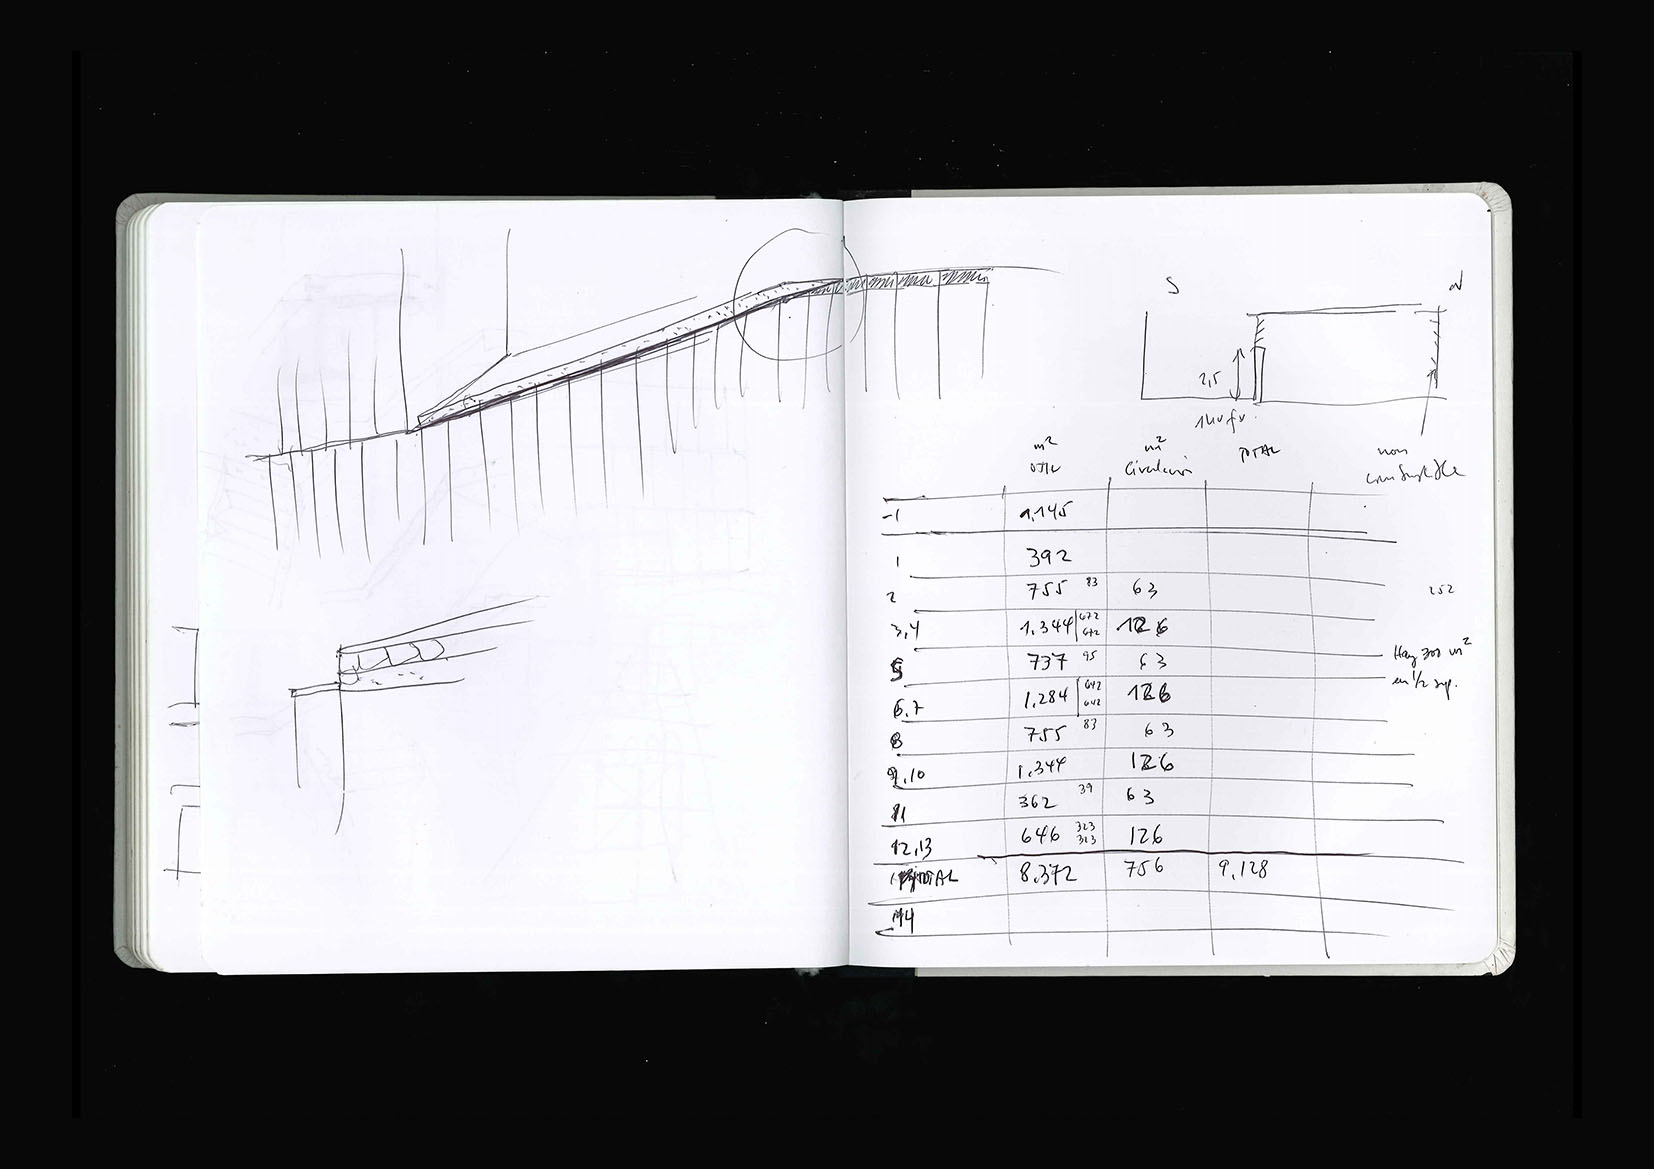 S N
2,5
m² m² TOTAL non
UTIL Circulación
-1 1,145
1 392
2 755 83 63 252
3,4 1,344 672 672 126
5 737 95 63 Hay 300 m²
en 1/2 sup.
6,7 1,284 642 642 126
8 755 83 63
9,10 1,344 126
11 362 39 63
12,13 646 323 323 126
TOTAL 8,372 756 9,128
14